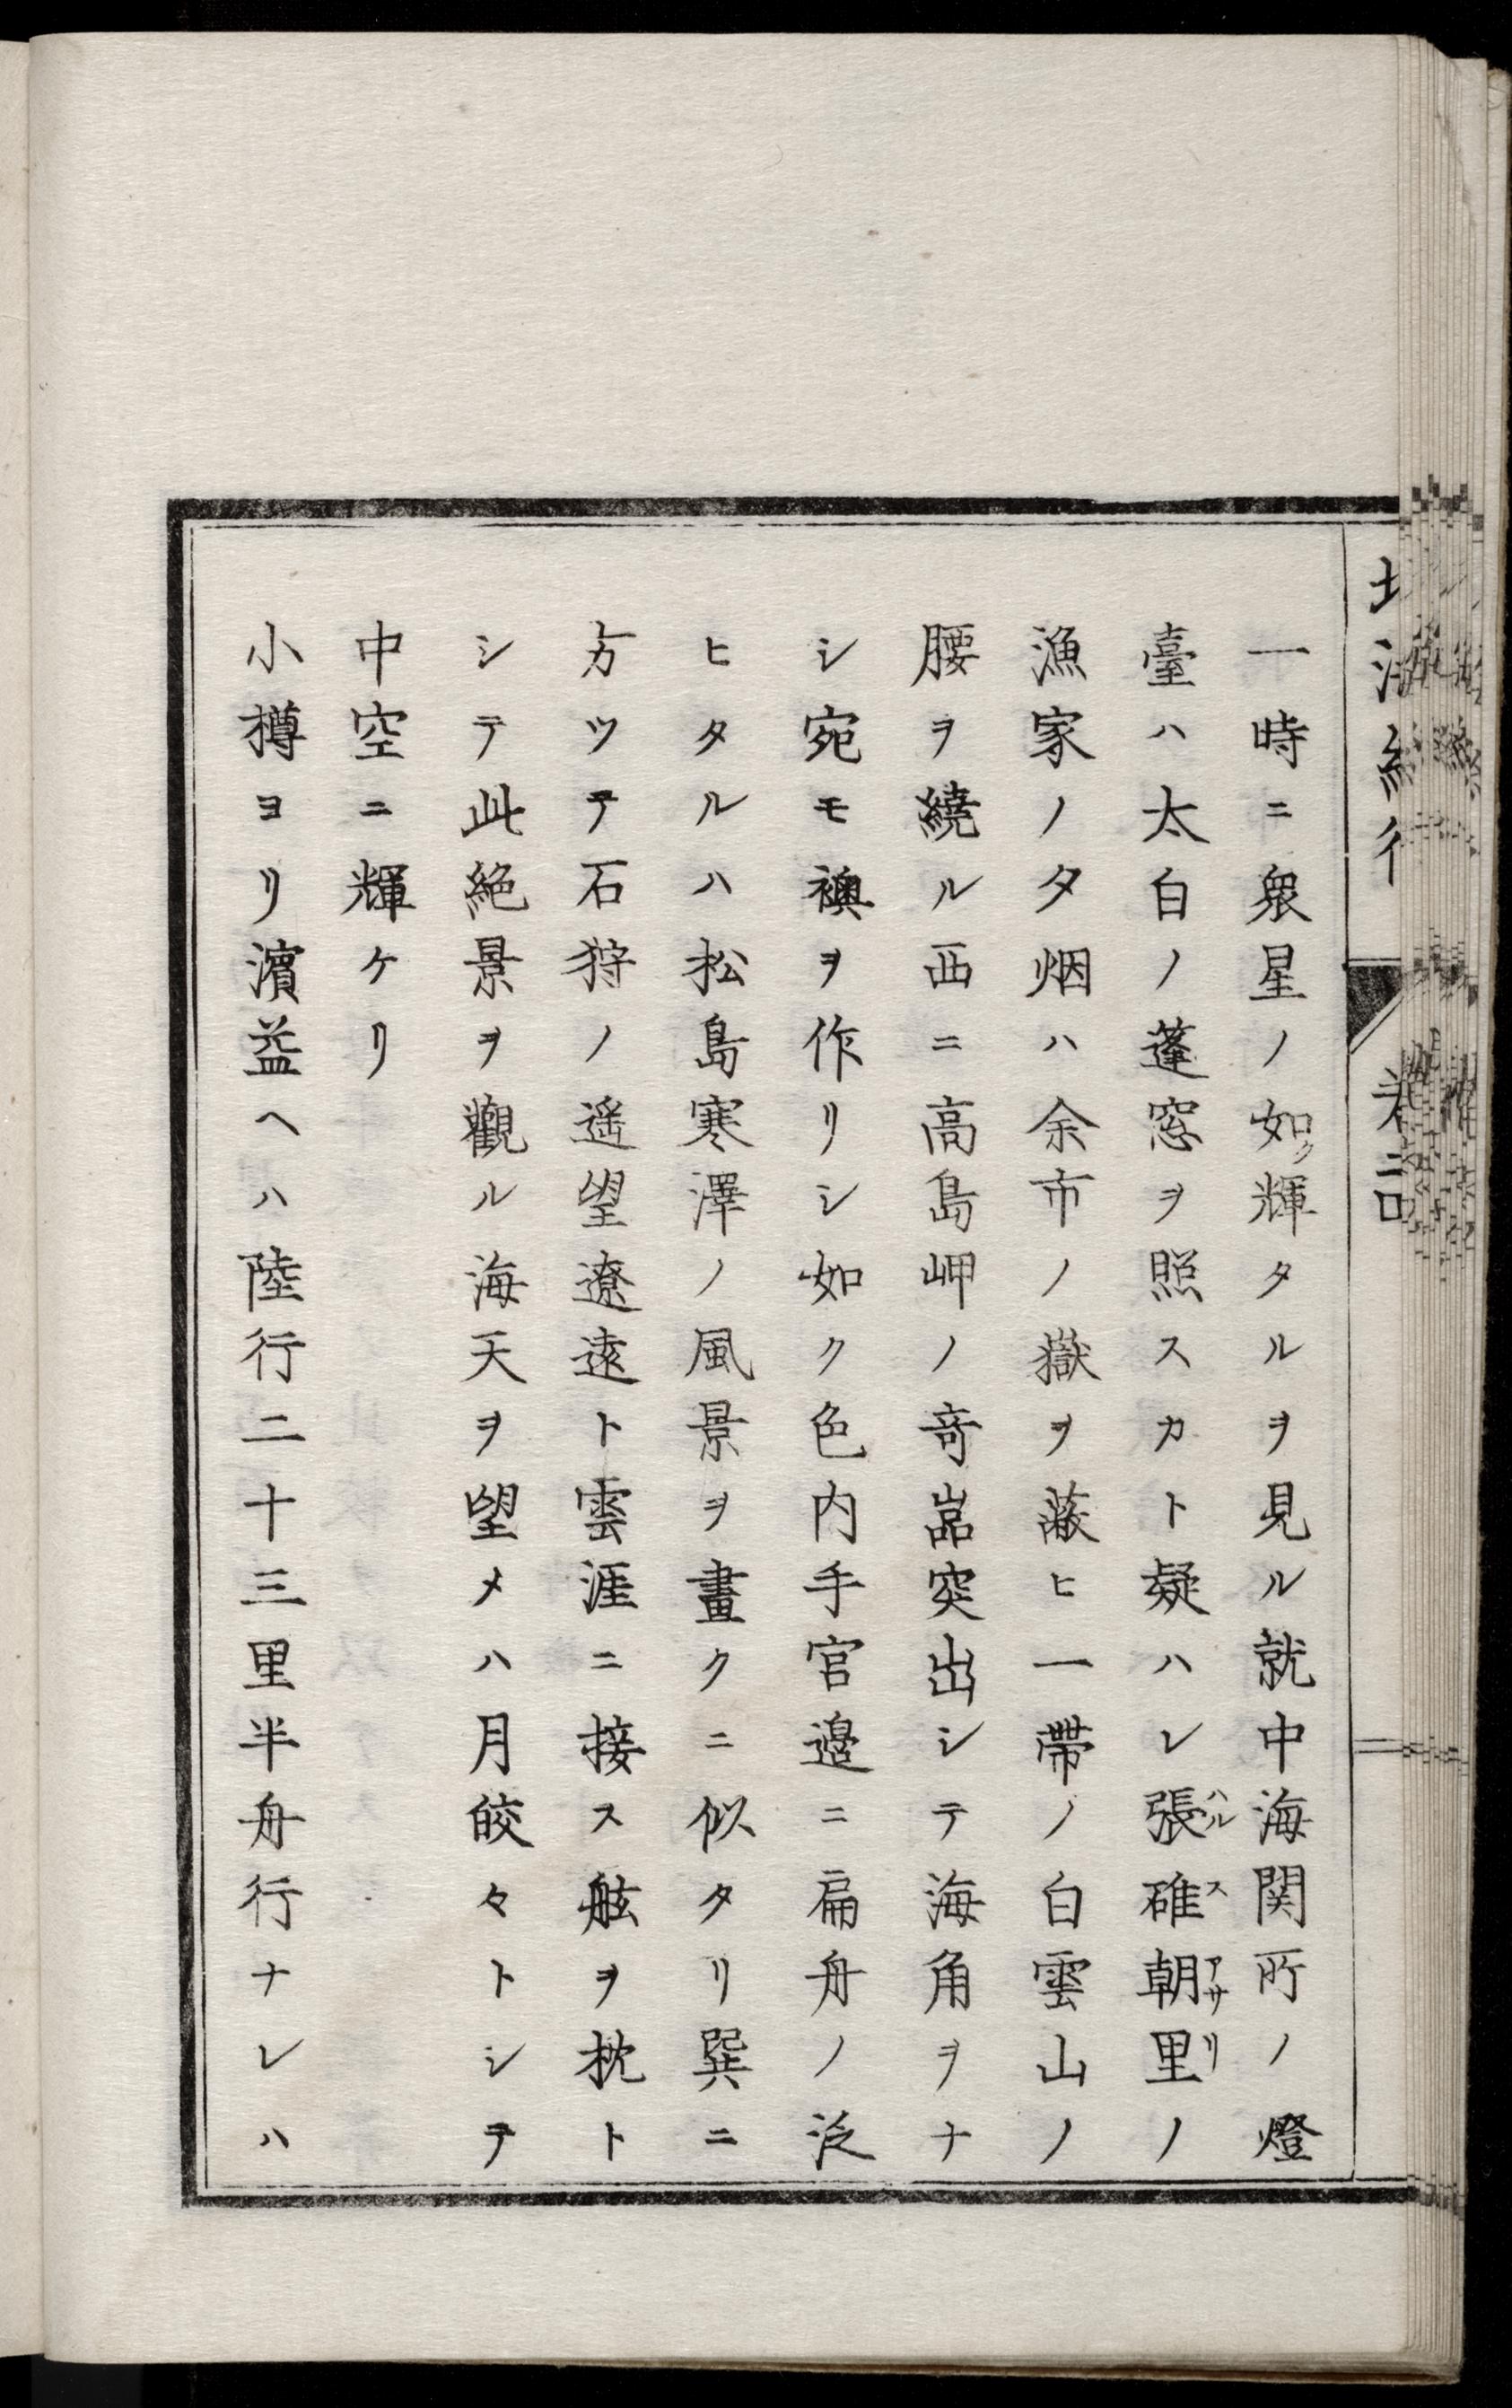 一時ニ衆星ノ如ク輝タルヲ見ル就中海関所ノ燈
臺ハ太白ノ蓬窓ヲ照スカト疑ハレ張碓朝里ノ
ハルスアサリ
漁家ノ夕烟ハ余市ノ嶽ヲ蔽ヒ一帶ノ白雲山ノ
腰ヲ繞ル西ニ高島岬ノ奇嵓突出シテ海角ヲナ
シ宛モ襖ヲ作リシ如ク色内手宮邉ニ扁舟ノ泛
ヒタルハ松島寒澤ノ風景ヲ畫クニ似タリ巽ニ
方ツテ石狩ノ遥望遼遠ト雲涯ニ接ス舷ヲ枕ト
シテ此絶景ヲ觀ル海天ヲ望メハ月皎々トシテ
中空ニ輝ケリ
小樽ヨリ濱益ヘハ陸行二十三里半舟行ナレハ